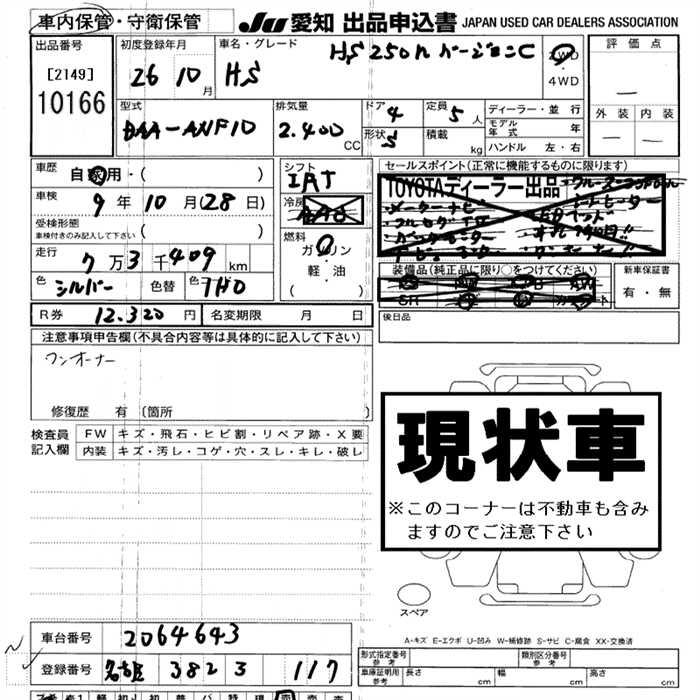 車内保管・守衛保管
JU 愛知 出品申込書 JAPAN USED CAR DEALERS ASSOCIATION
出品番号
[2149]
10166
初度登録年月
26 10 月
車名・グレード
HS HS250h バージョンC
2WD
・
4WD
評価点
—
外装 内装
— —
型式
DAA-ANF10
排気量
2.400 CC
ドア 4
形状 S
定員 5 人
積載 kg
ディーラー・並行
モデル年式 年
ハンドル 左・右
車歴
自家用・( )
車検
9 年 10 月(28 日)
受検形態
車検付きのみ記入して下さい ( )
走行
7 万 3 千 409 km
色 シルバー 色替 色 1H0
シフト
IAT
冷房
AAC
燃料
ガソリン
軽・油
( )
セールスポイント(正常に機能するものに限ります)
TOYOTAディーラー出品
装備品(純正品に限り○をつけてください)
新車保証書
有・無
R券 12.320 円 名変期限 月 日
後日品
注意事項申告欄(不具合内容等は具体的に記入して下さい)
ワンオーナー
修復歴 有〔箇所 〕
検査員
記入欄
FW キズ・飛石・ヒビ割・リペア跡・X要
内装 キズ・汚レ・コゲ・穴・スレ・キレ・破レ
現状車
※このコーナーは不動車も含み
ますのでご注意下さい
スペア
A-キズ E-エクボ U-凹み W-補修跡 S-サビ C-腐食 XX-交換済
車台番号 2064643
登録番号 名古屋 382 3 117
形式指定番号
参考
類別区分番号
参考
車庫証明用
参考
長さ cm
幅 cm
高さ cm